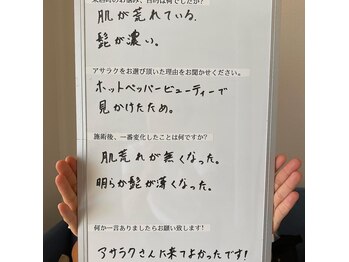 来店時のお悩み、目的は何でしたか?
肌が荒れている.
髭が濃い。
アサラクをお選び頂いた理由をお聞かせください。
ホットペッパービューティーで
見かけたため。
施術後、一番変化したことは何ですか?
肌荒れが無くなった。
明らか髭が薄くなった。
何か一言ありましたらお願い致します!
アサラクさんに来てよかったです!